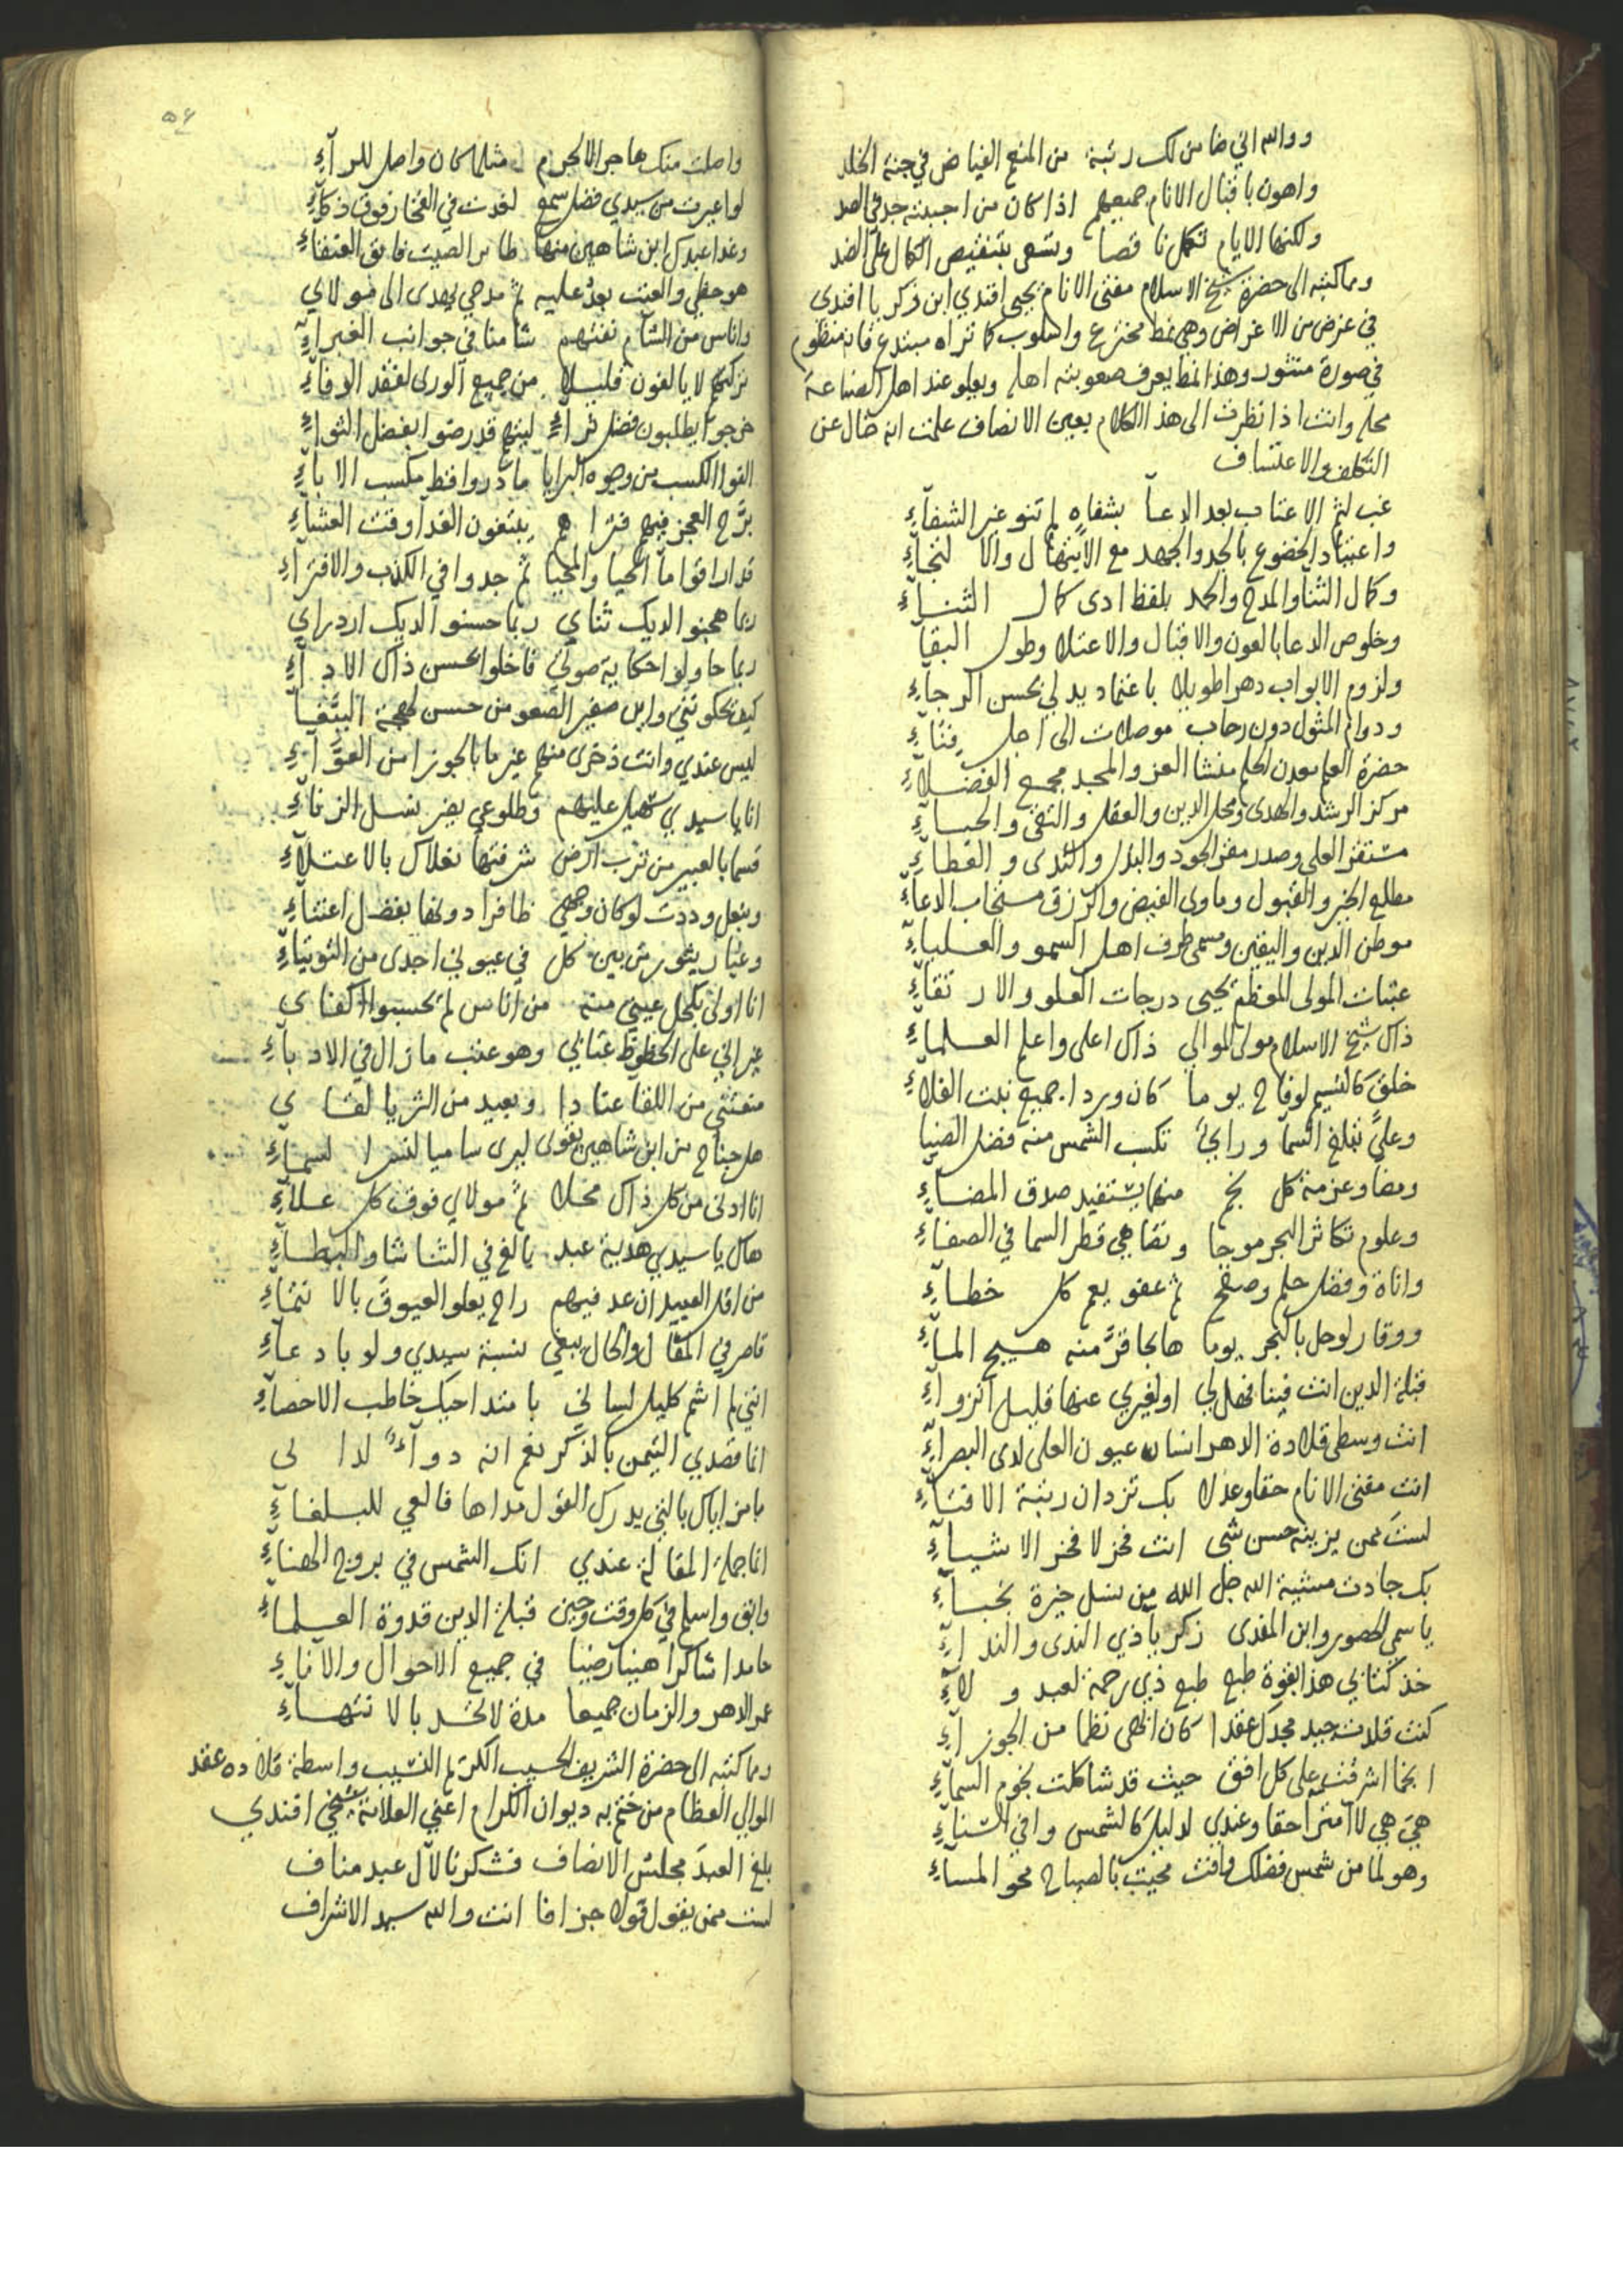 ووالله اني ضامن لك رتبة من المنعم الفياض في جنة الخلد
واهون باقبال الانام جميعهم اذا كان من احببته جد في الصد
ولكنها الايام تكمل ناقصا وتسعى بتنقيص الكمال على الضد
ومما كتبته الى حضرة شيخ الاسلام مفتى الانام يحيى افندي ابن زكريا افندى
في غرض من الاغراض وهى نمط مخترع واسلوب كما تراه مبتدع فانه منظوم
في صورة منثور وهذا النمط يعرف صعوبته اهله ويعلو عند اهل الصناعة
محله وانت اذا نظرت الى هذا الكلام بعين الانصاف علمت انه خال عن
التكلف والاعتساف
غب لثم الاعتاب بعد الدعآ بشفاه لم تنو غير الشفآءِ
واعتياد الخضوع بالجد والجهد مع الابتهال والالتجآءِ
وكمال الثنآ والمدح والحمد بلفظ ادى كمال الثنــآءِ
وخلوص الدعا بالعون والاقبال والاعتلا وطول البقآ
ولزوم الابواب دهرا طويلا باعتماد يدلي بحسن الرجآءِ
ودوام المثول دون رحاب موصلات الى اجل فنآءِ
حضرة العلم معدن الحلم منشا العز والمجد مجمع الفضــلآءِ
مركز الرشد والهدى ومحل الدين والعقل والتقى والحيــآءِ
مستقر العلى وصدر مقر الجود والبذل والندى والعطآءِ
مطلع الخير والقبول وماوى الفيض والرزق مستجاب الدعآءِ
موطن الدين واليقين ومسمى طرف اهل السمو والعــليآءِ
عتبات المولى المعظم يحيى درجات العلو والارتقآءِ
ذاك شيخ الاسلام مولى الموالي ذاك اعلى واعلم العــلمآءِ
خلق كالنسيم لوفاح يوما كان وردا جميع نبت الفلاءِ
وعلىً تبلغ السمآ وراىٌ تكسب الشمس منه فضل الضيآ
ومضا وعزمة كل نجم منها يستفيد صدق المضــآءِ
وعلوم تكاثر البحر موجا وتضاهي قطر السما في الصفآءِ
واناة وفضل حلم وصفح ثم عفو يعم كل خطــآءِ
ووقار لوحل بالبحر يوما هايجا قرَّ منه هــيج المــآءِ
قبلة الدين انت فينا فهل لي او لغيري عنها قليل انزوآءِ
انت وسطى قلادة الدهر انسان عيون العلى لدى البصرآءِ
انت مفتى الانام حقا وعدلا بك تزدان رتبة الافتآءِ
لستَ ممن يزينه حسن شى انت فخر لا فخر الاشيــآءِ
بك جادت مشيئة الله جل الله من نسل خيرة نجبــآءِ
يا سمي الحصور وابن المفدى زكريا ذي الندى والندآءِ
خذ كتابي هذا بقوة طبع طبع ذي رحمة لعبد ولآءِ
كنت قلدت جيد مجدك عقدا كان ابهى نظما من الجوزآءِ
انجما اشرقت على كل افق حيث قد شاكلت نجوم السمآءِ
هيَ هي لا امترآ حقا وعندي لدليل كالشمس وافى السنآءِ
وهو لما من شمس فضلك وافت محيت بالصباح محو المسآءِ
٥٤
واصلت منك هاجر الالجرم مثلما كان واصل للرآءِ
لو اعيرت من سيدي فضل سمع لغدت في الفخار فوق ذكآءِ
وغدا عبدك ابن شاهين منها طاير الصيت فايق العنقآءِ
هو حظي والعتب بعدُ عليه ثم مدحي يهدى الى مولاي
واناس من الشآم نفتهم شامنا في جوانب الغبرآءِ
تركتهم لا يالفون قليلا من جميع الورى لفقد الوفآءِ
خرجوا يطلبون فضل ثرآءٍ ليتهم قد رضوا بفضل الثوآءِ
الفوا الكسب من وجوه البرايا ما دروا قط مكسب الابآءِ
برَّح العجز فيهم فتراهم يبتغون الغدآ وقت العشآءِ
قد اراقوا مآ الحيا والمحيا ثم جدوا في الكذب والافترآءِ
ربما هجنو الديك ثناي ربما حسنو الديك ازدراي
ربما حاولوا حكاية صوتى فاخلوا بحسن ذاك الادآءِ
كيف تحكونني واين صفير الصعو من حسن لهجة الببَّغــآ
ليس عندي وانت ذخرى منهم غير ما بالجوزا من العوَّآءِ
انا يا سيدي سهيل عليهم وطلوعي يضر نسل الزنآءِ
قسما بالعبير من ترب ارض شرفتها نعلاك بالاعتــلآءِ
وبنعل وددت لو كان وجهي ظافرا دونها بفضل اعتنآءِ
وغبار يثور من بين كل في عيوني اجدى من التوتيآءِ
انا اولى بكحل عيني منه من اناس لم يحسبوا اكفاى
غير اني على الحظوظ عتابي وهو عتب ما زال في الادبآءِ
منعتني من اللقا عنادا وبعيد من الثريا لقاى
هل جناح من ابن شاهين يقوى ليرى ساميا لنسر السمــآءِ
انا ادنى من كل ذاك محــلا ثم مولاي فوق كل عــلآءِ
هاك يا سيدي هدية عبد بالغ في الثنا
من اقل العبيد ان عد فيهم راح يعلو العيوق بالانتمآءِ
قاصر في المقال والحال يبغي نسبة سيدي ولو بادعآءِ
انني لم اشم كليل لساني بامتداحيك خاطب الاحصآءِ
انما قصدي التيمن بالذكر نعم انه دوآءٌ لداىى
يا من اياك بالتي يدرك القول مداها فالعي للبــلغآءِ
انما جملة المقالة عندي انك الشمس في بروج الهنــآءِ
وابق واسلم في كل وقت وحين قبلة الدين قدوة العــلمآءِ
حامدا شاكرا هنيا رضيا في جميع الاحوال والاناءِ
عمر الدهر والزمان جميعا مدة لا تحــد بالانتهــآءِ
ومما كتبته الى حضرة الشريف الحسيب الكريم النسيب واسطة قلاده عقد
الموالي العظام من ختم به ديوان الكرام اعني العلامة شيخي افندي
بلغ العبدَ مجلسُ الانصاف فشكرنا لآل عبد مناف
لست ممن يقول قولا جزافا انت والله سيد الاشراف